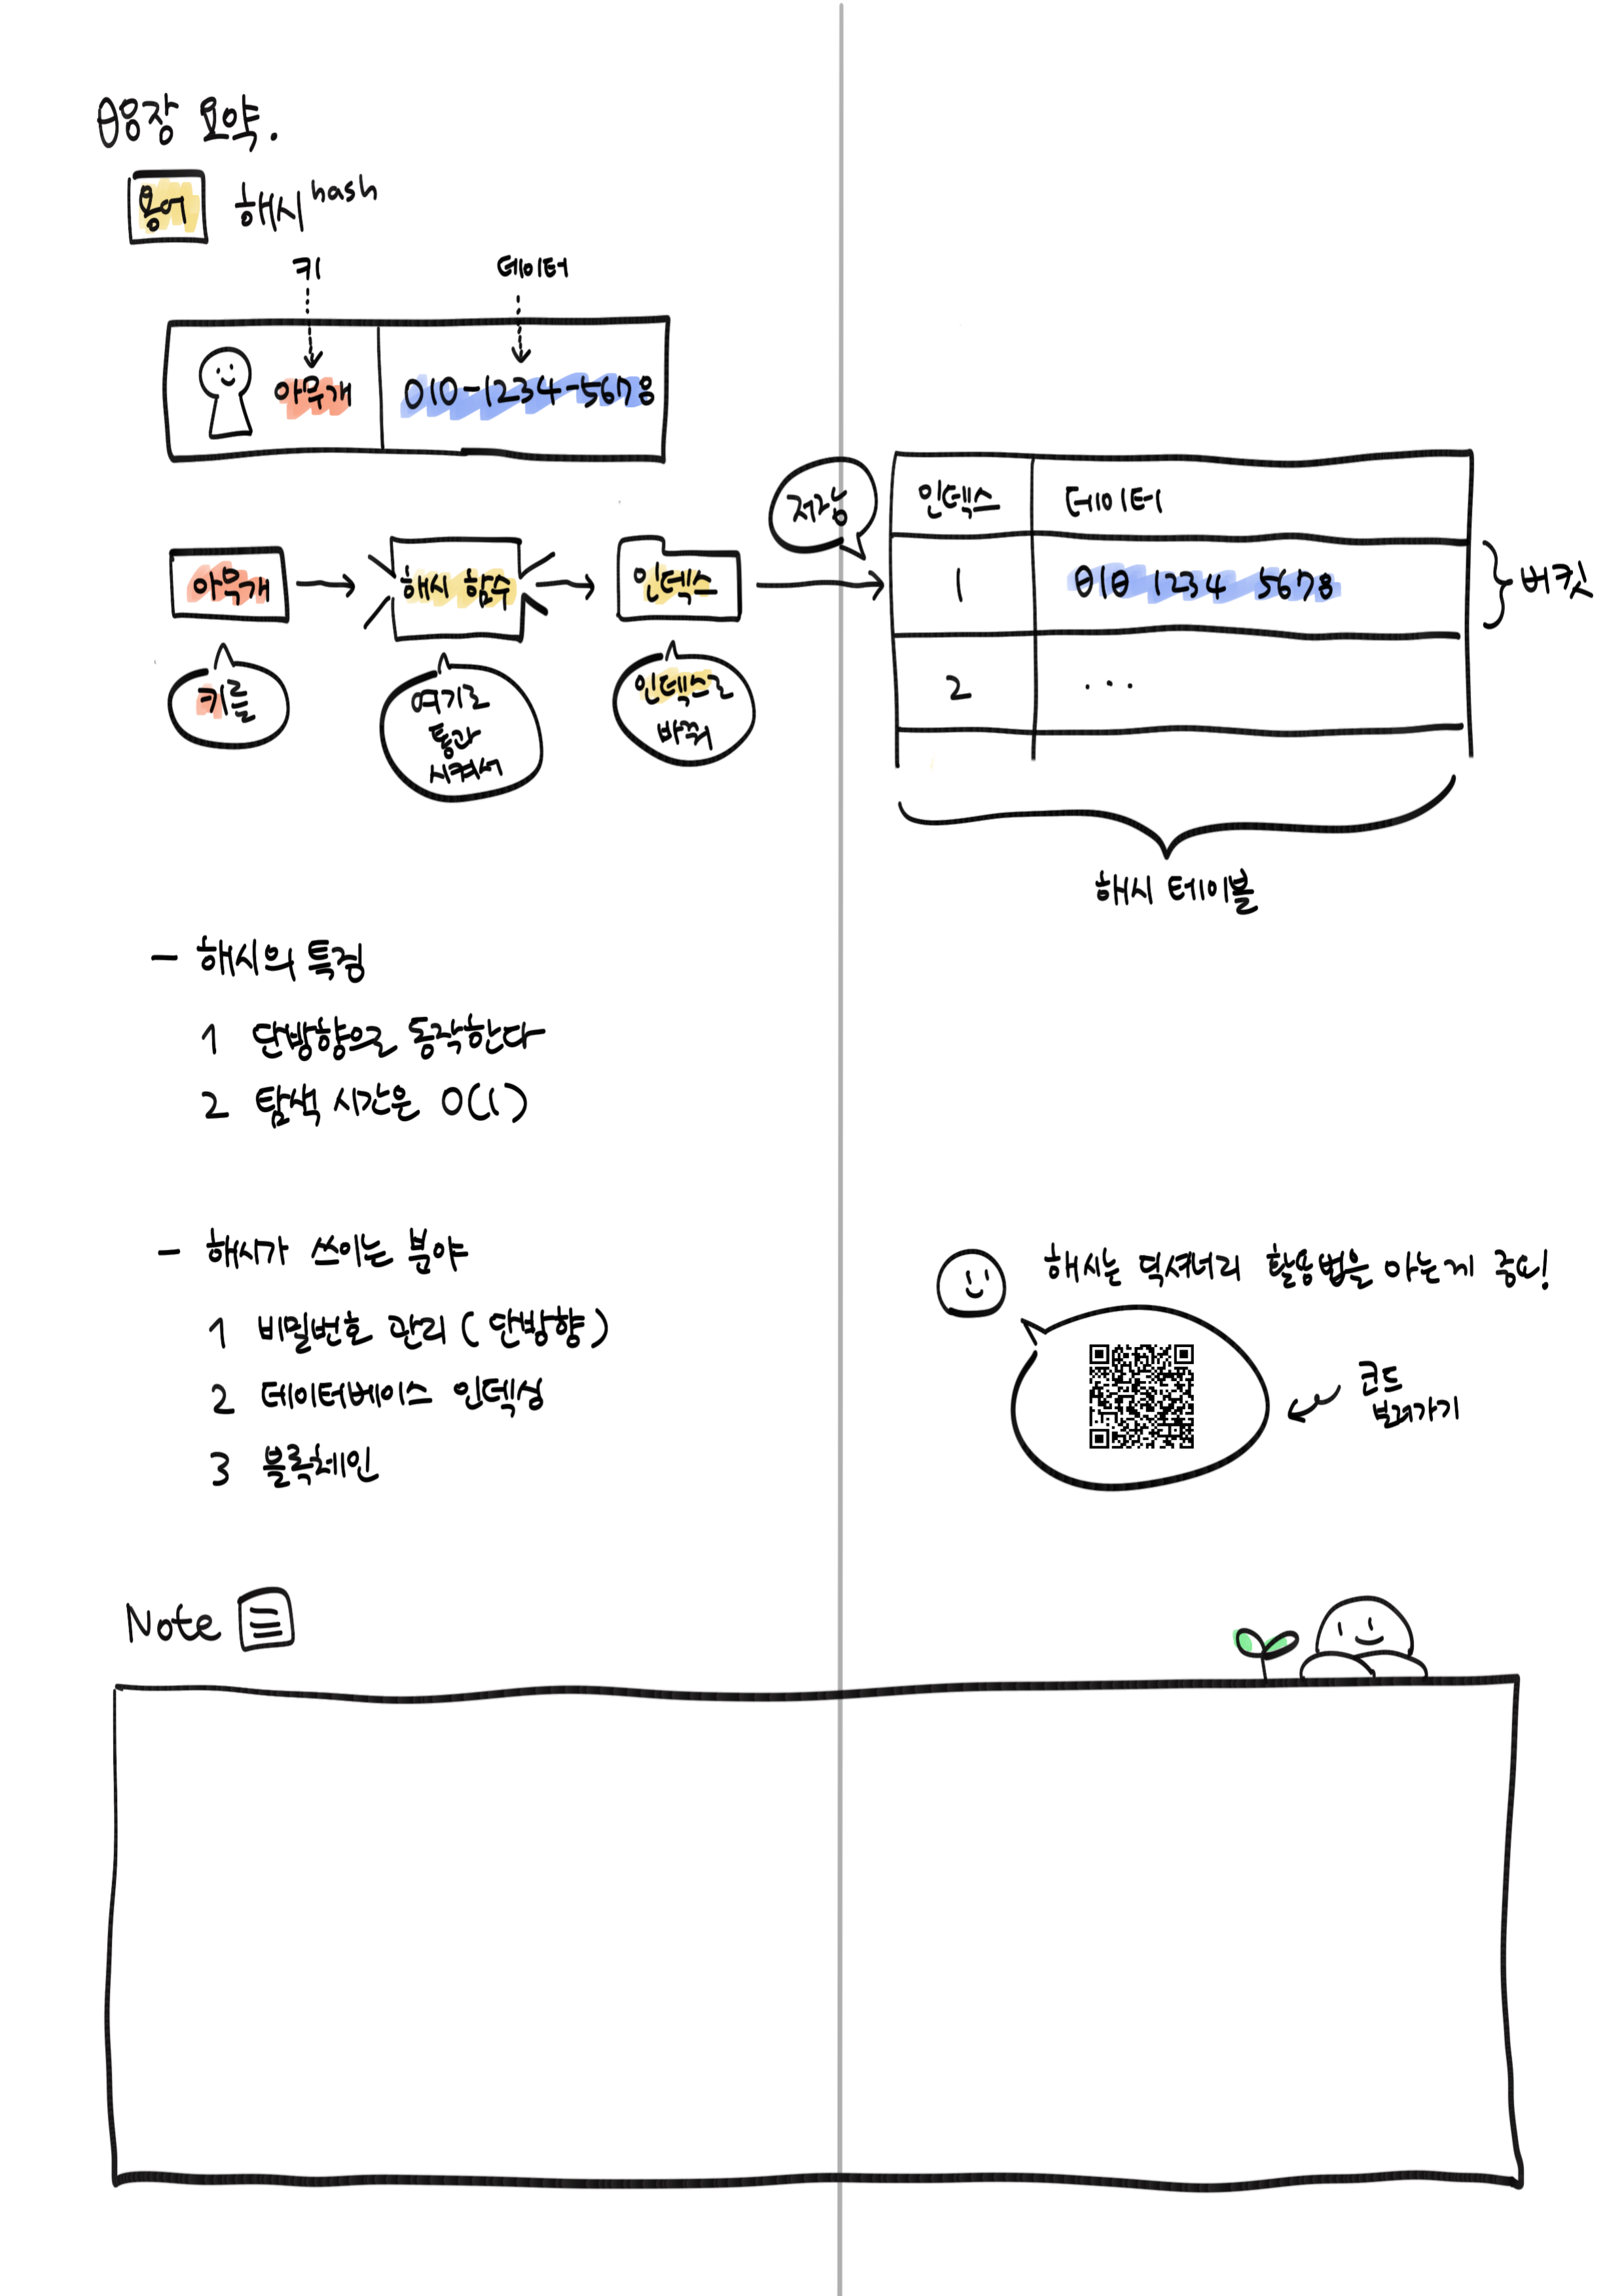 08장 요약.
용어 해시 hash
키 데이터
아무개 010-1234-5678
아무개 → 해시 함수 → 인덱스 →
키를
여기로
통과
시켜서
인덱스로
바꿔
저장
인덱스 데이터
1 010 1234 5678
2 ...
버킷
해시 테이블
- 해시의 특징
1 단방향으로 동작한다
2 탐색 시간은 O(1)
- 해시가 쓰이는 분야
1 비밀번호 관리 (단방향)
2 데이터베이스 인덱싱
3 블록체인
해시는 딕셔너리 활용법을 아는게 중요!
코드
보러가기
Note